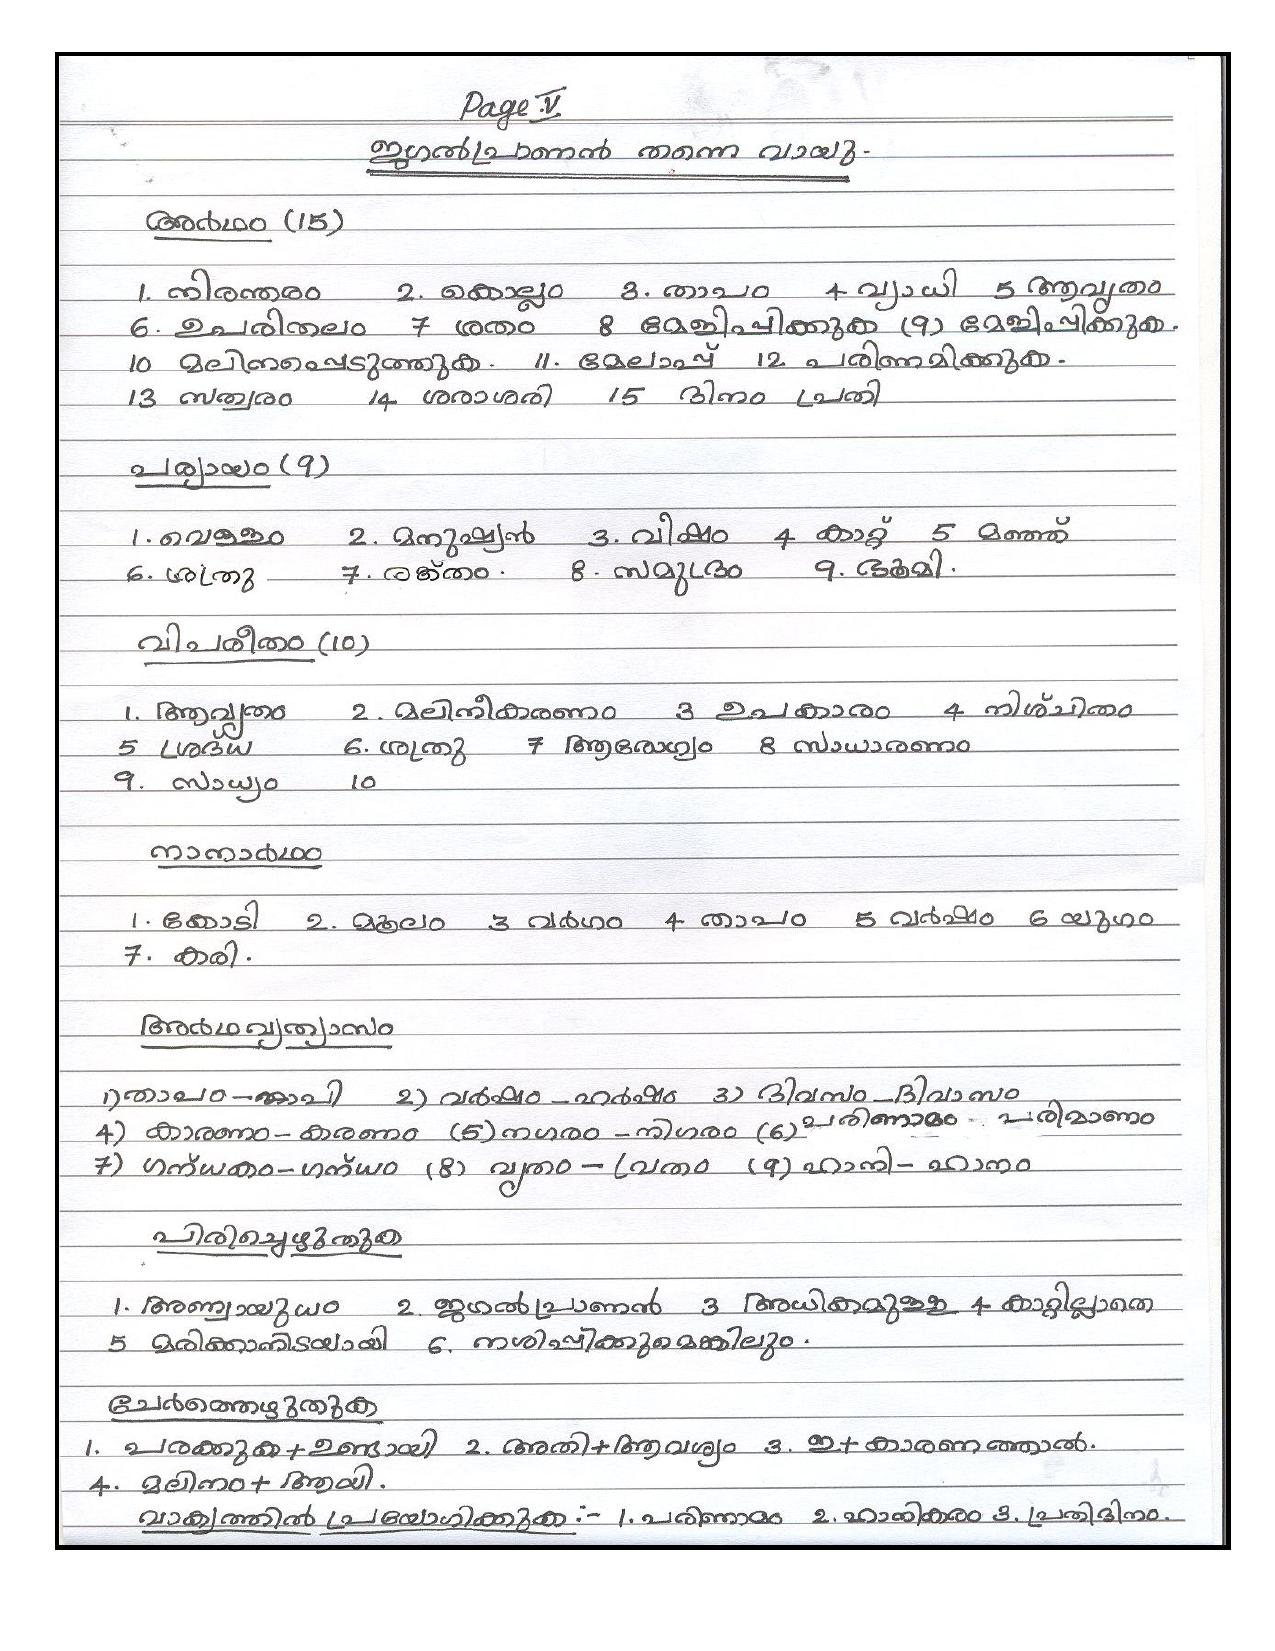 Page V
ജഗൽപ്രാണൻ തന്നെ വായു-
അർഥം (15)
1. നിരന്തരം 2. കൊല്ലം 3. താപം 4 വ്യാധി 5 ആവൃതം
6. ഉപരിതലം 7 ശതം 8 ഭേജിപ്പിക്കുക (9) ഭേജിപ്പിക്കുക.
10 മലിനപ്പെടുത്തുക. 11. മേലാപ്പ് 12 പരിണമിക്കുക.
13 സത്വരം 14 ശരാശരി 15 ദിനം പ്രതി
പര്യായം (9)
1. വെള്ളം 2. മനുഷ്യൻ 3. വിഷം 4 കാറ്റ് 5 മഞ്ഞ്
6. ശത്രു 7. രക്തം. 8. സമുദ്രം 9. ഭൂമി.
വിപരീതം (10)
1. ആവൃതം 2. മലിനീകരണം 3 ഉപകാരം 4 നിശ്ചിതം
5 ശ്രദ്ധ 6. ശത്രു 7 ആരോഗ്യം 8 സാധാരണം
9. സാധ്യം 10
നാനാർഥം
1. കോടി 2. മൂലം 3 വർഗം 4 താപം 5 വർഷം 6 യുഗം
7. കരി.
അർഥവ്യത്യാസം
1) താപം - താപി 2) വർഷം - ഹർഷം 3) ദിവസം - ദിവാസം
4) കാരണം - കരണം (5) നഗരം - നിഗരം (6) പരിണാമം - പരിമാണം
7) ഗന്ധകം - ഗന്ധം (8) വൃതം - വ്രതം (9) ഹാനി - ഹാനം
പിരിച്ചെഴുതുക
1. അണ്വായുധം 2. ജഗൽപ്രാണൻ 3 അധികമുള്ള 4 കാറ്റില്ലാതെ
5 മരിക്കാനിടയായി 6. നശിപ്പിക്കുമെങ്കിലും.
ചേർത്തെഴുതുക
1. പരക്കുക + ഉണ്ടായി 2. അതി + ആവശ്യം 3. ഇ + കാരണത്താൽ.
4. മലിനം + ആയി.
വാക്യത്തിൽ പ്രയോഗിക്കുക :- 1. പരിണാമം 2. ഹാനികരം 3. പ്രതിദിനം.